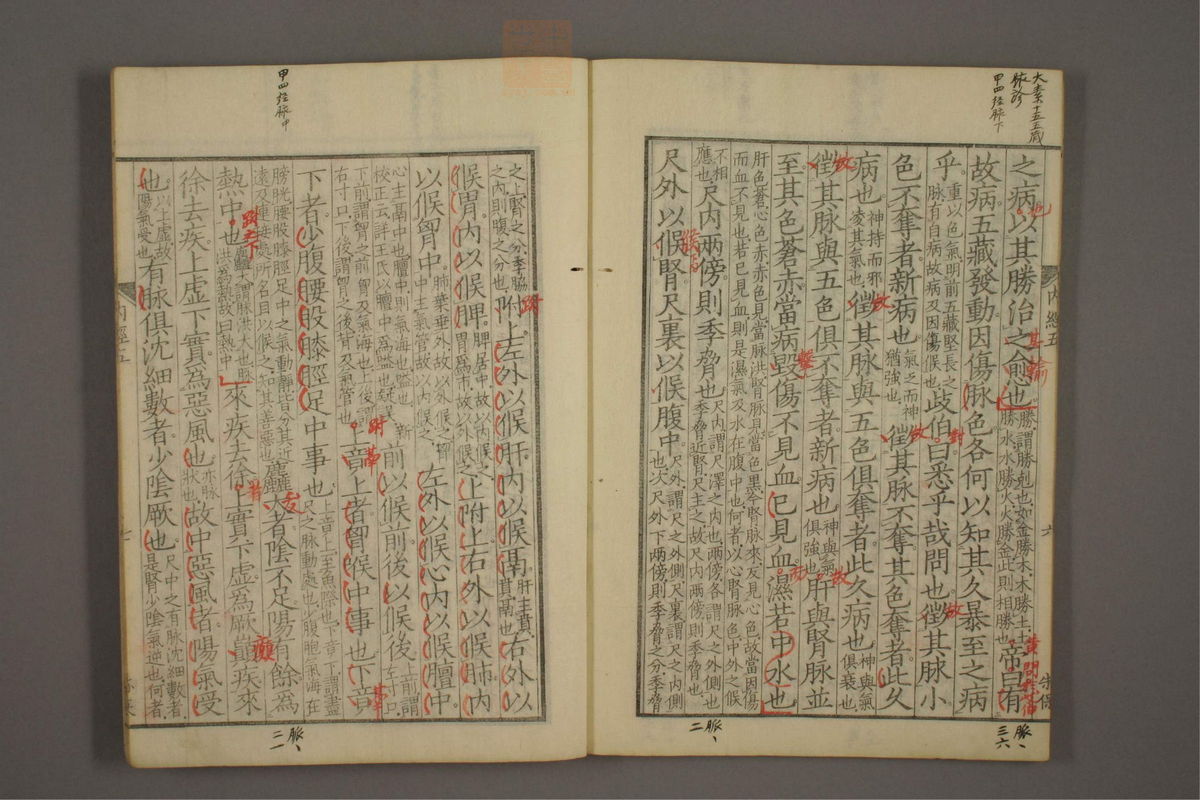 大素十五五藏
脉診
甲四経脉下
之病以其勝治之愈也勝謂勝剋也如金勝木木勝土土
勝水水勝火火勝金此則相勝也帝曰有
故病五藏發動因傷脉色各何以知其久暴至之病
乎重以色氣明前五藏堅長之
脉有自病故病及因傷候也歧伯曰悉乎哉問也徵其脉小
色不奪者新病也氣乏而神
猶強也徵其脉不奪其色奪者此久
病也神持而邪
凌其氣也徵其脉與五色俱奪者此久病也神與氣
俱衰也
徵其脉與五色俱不奪者新病也神與氣
俱強也肝與腎脉並
至其色蒼赤當病毀傷不見血已見血濕若中水也
肝色蒼心色赤赤色見當脉洪腎脉見當色黑今腎脉來反見心色故當因傷
而血不見也若已見血則是濕氣及水在腹中也何者以心腎脉色中外之候
不相
應也尺内兩傍則季脅也尺内謂尺澤之内也兩傍各謂尺之外側也
季脅近腎尺主之故尺内兩傍則季脅也
尺外以候腎尺裏以候腹中尺外謂尺之外側尺裏謂尺之内側
也次尺外下兩傍則季脅之分季脅
内經五
六
脉、
三六
脉、
二
甲四経脉中
之上腎之分季脇
之内則腹之分也附上左外以候肝内以候鬲肝主賁
賁鬲也右外以
候胃内以候脾脾居中故以内候之
胃爲市故以外候之上附上右外以候肺内
以候胷中肺葉垂外故以外候之胷
中主氣管故以内候之左外以候心内以候膻中
心主鬲中也膻中則氣海也嗌也新
校正云詳王氏以膻中爲嗌也疑誤前以候前後以候後上前謂
左寸口
下前謂胷之前膺及氣海也上後謂
右寸口下後謂胷之後背及氣管也上竟上者胷喉中事也下竟
下者少腹腰股膝脛足中事也上竟上至魚際也下竟下謂盡
尺之脉動處也少腹胞氣海在
膀胱腰股膝脛足中之氣動靜皆分其近
遠及連接處所名目以候之知其善惡也麤大者陰不足陽有餘爲
熱中也麤大謂脉洪大也脉
洪爲熱故曰熱中來疾去徐上實下虛爲厥巓疾來
徐去疾上虛下實爲惡風也亦脉
狀也故中惡風者陽氣受
也以上虛故
陽氣受也有脉俱沈細數者少陰厥也尺中之有脉沈細數者
是腎少陰氣逆也何者
内經五
七
脉、
二一